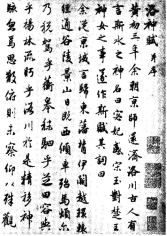 洛神賦 并序
黃初三年余朝京師還濟洛川古人有
言斯水之神名曰宓妃感宋玉對楚王
神女之事遂作斯賦其詞曰
余從京師言歸東藩背伊闕越轘轅
經通谷陵景山日既西傾車殆馬煩爾
乃稅駕乎蘅皋秣駟乎芝田容與
乎楊林流眄乎洛川於是精移神
駭忽焉思散俯則未察仰以殊觀